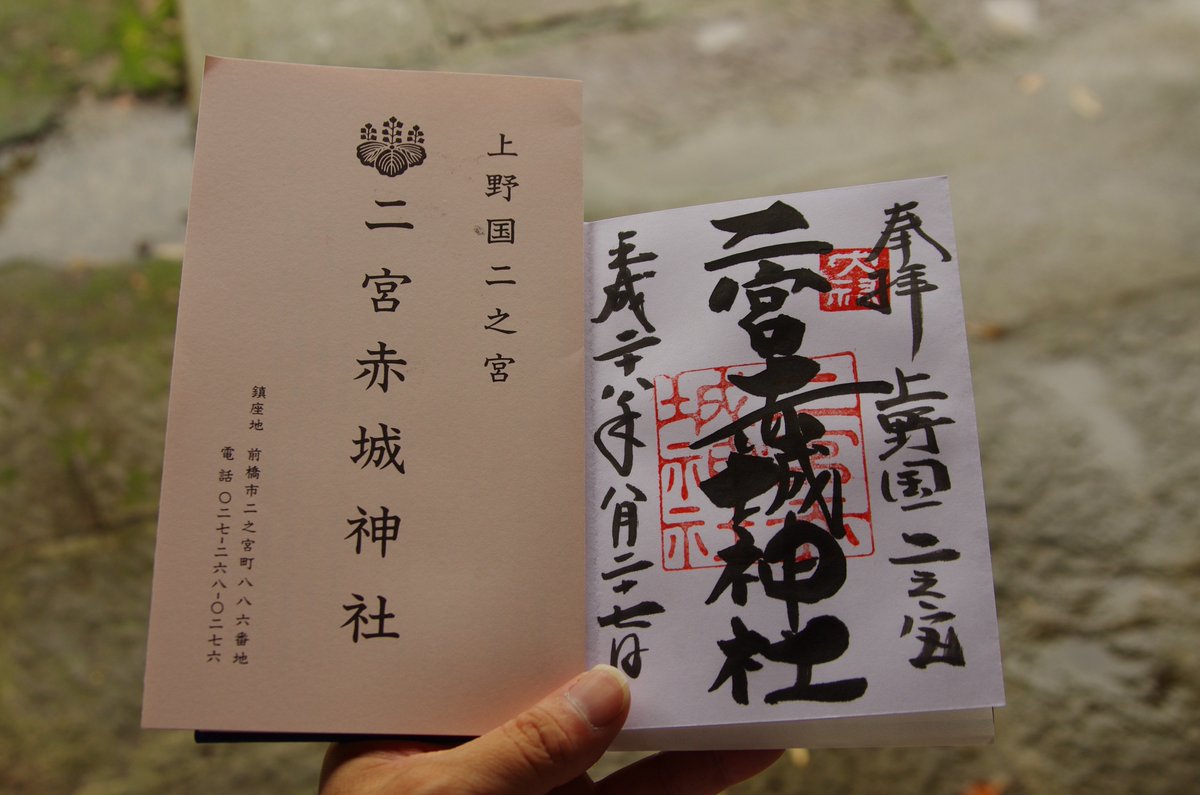 上野国二之宮
二宮赤城神社
鎮座地 前橋市二之宮町八八六番地
電話 〇二七-二六八-〇二七六
奉拝 上野国二之宮
二宮赤城神社
平成二十八年八月二十七日
二宮赤
城神社